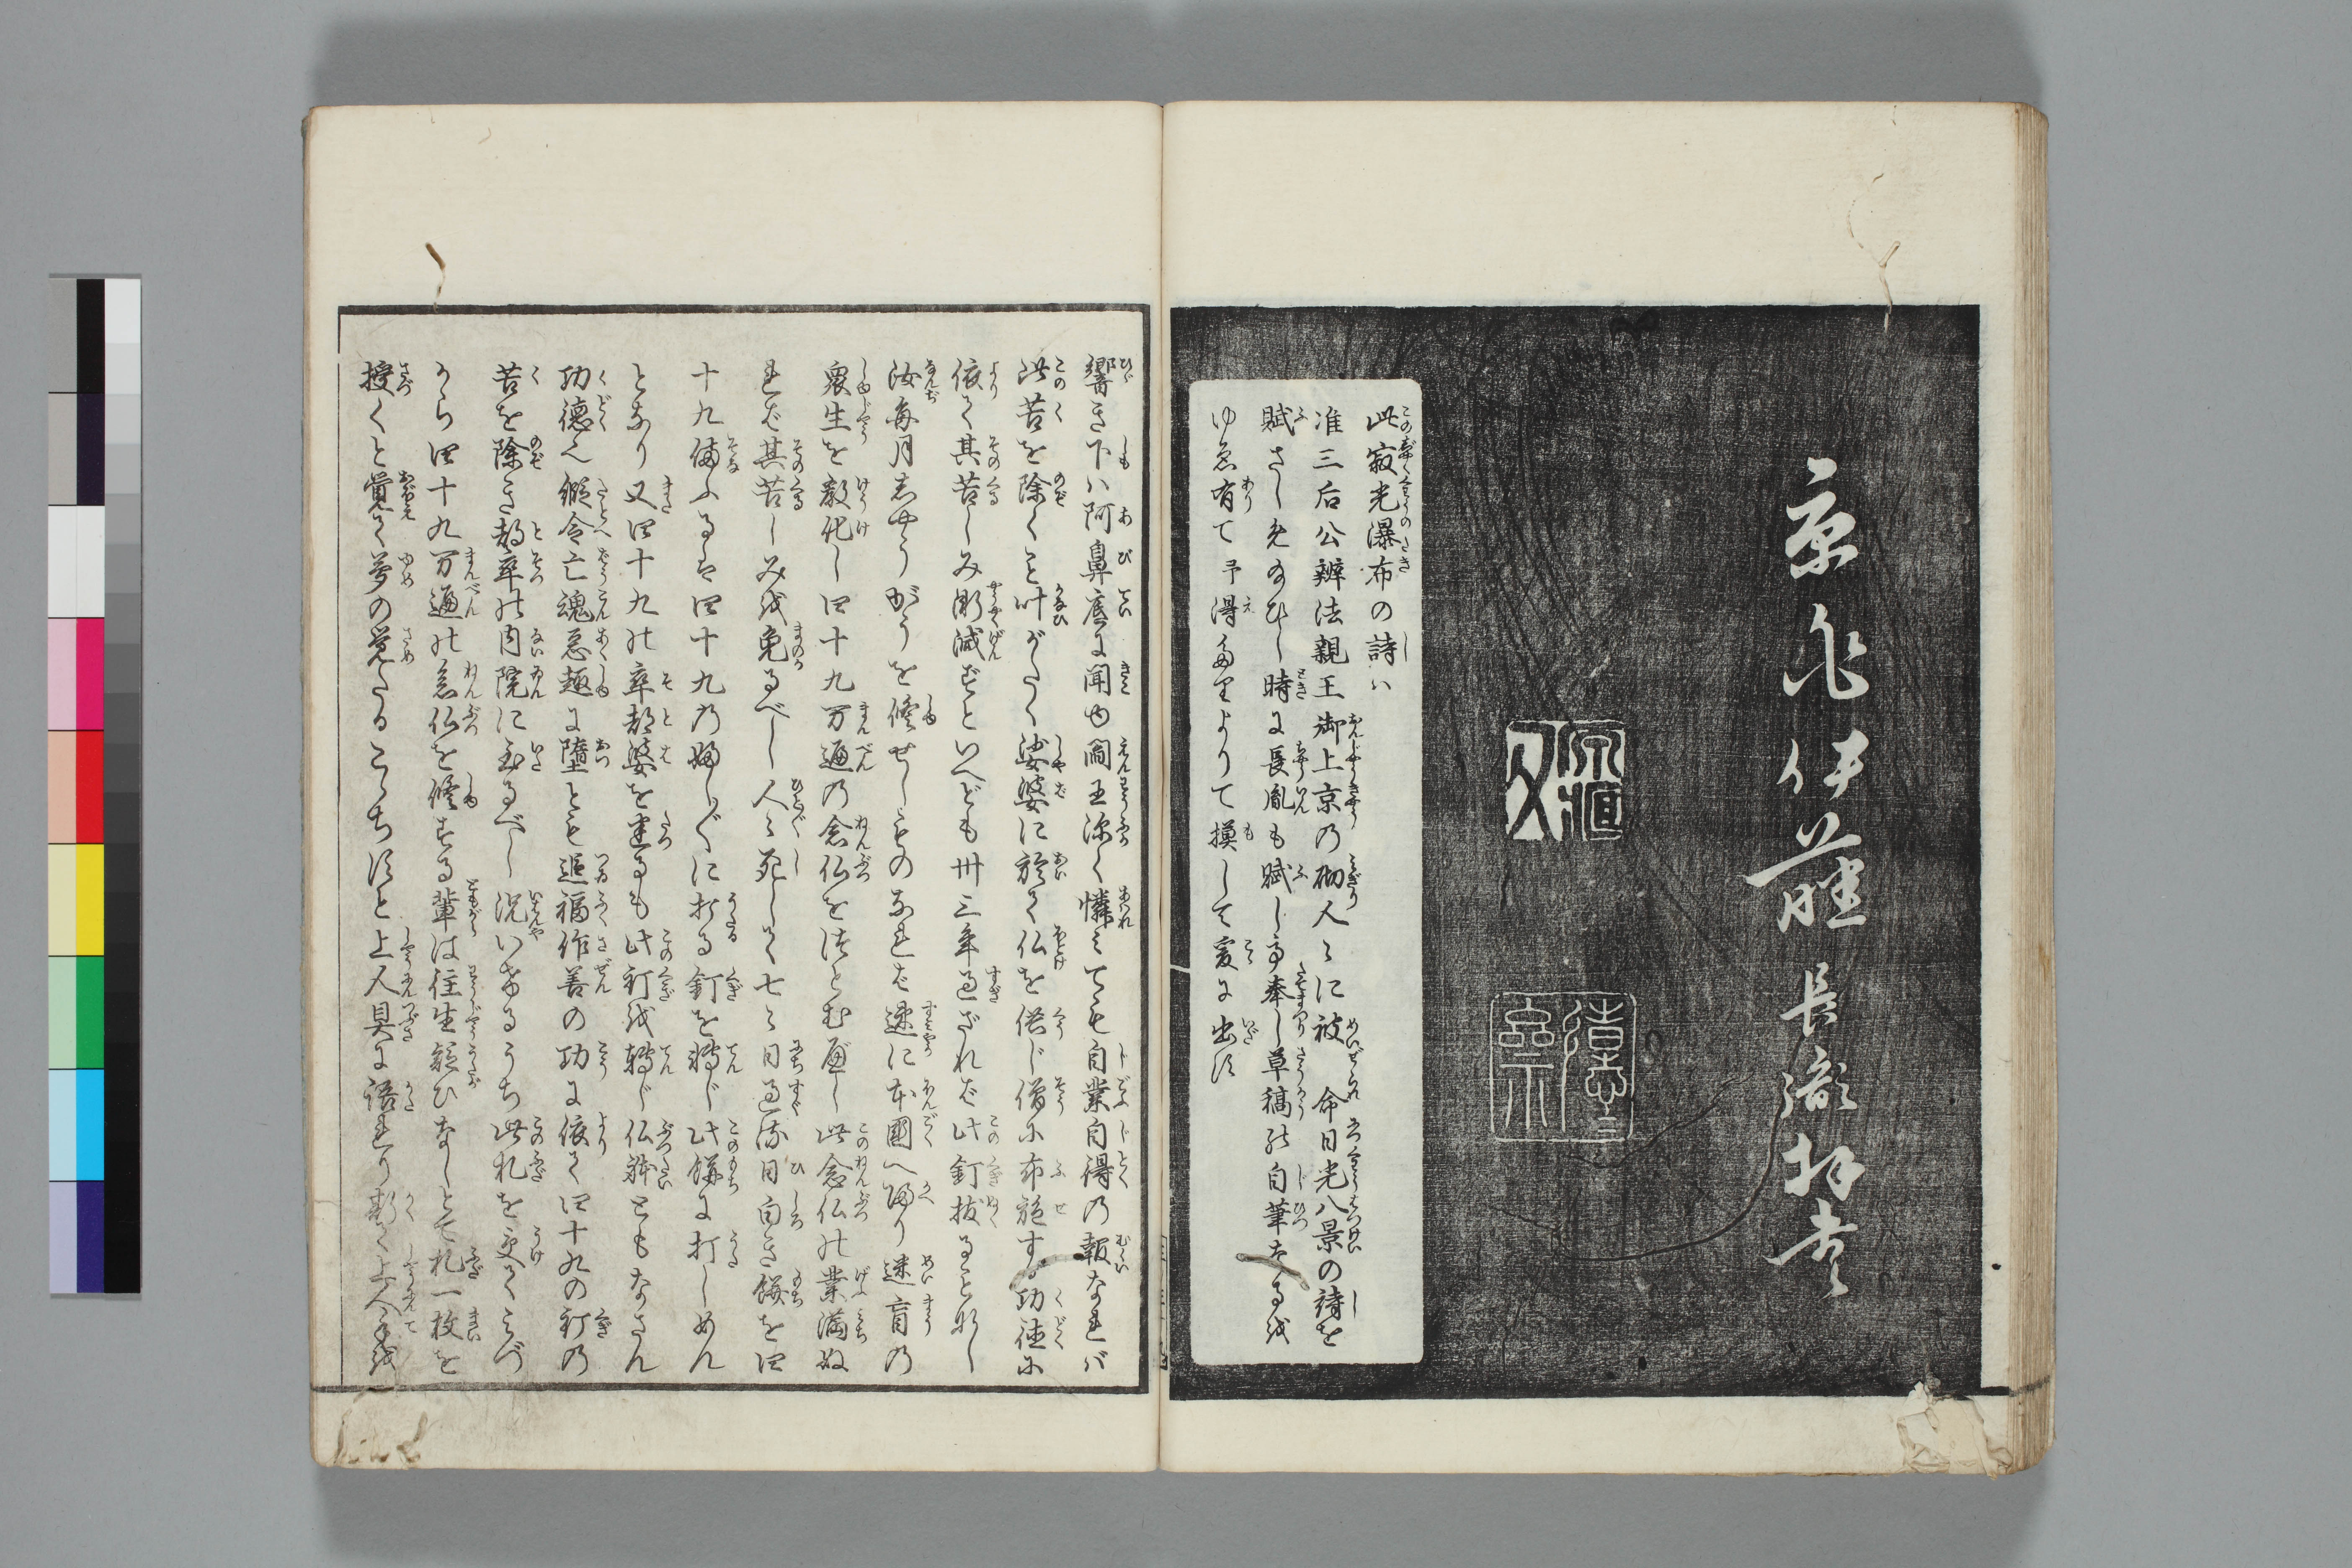 京兆伊藤長胤拝書
此寂光瀑布の詩ハ
准三后公辨法親王御上京の砌人〻に被 命日光八景の詩を
賦さしめ給ひし時に長胤も賦し奉し草稿の自筆なるを
ゆゑ有て予得たりよりて摸して爰に出す
響き下ハ阿鼻底に聞ゆ閻王深く憐みても自業自得の報なれバ
此苦を除くこと叶がたく娑婆に於て仏を供じ僧に布施する功徳に
依て其苦しみ漸減ずといへども卅三年過ざれば此釘抜ること難し
汝毎月あやうがうを修せしものなれば速に本国へ帰り迷盲の
衆生を教化し四十九万遍の念仏をつとむ届し此念仏の業満ぬ
れば其苦しみを免るべし人〻死して七〻日過ざる日白き餅を四
十九備ふるは四十九の婦しぶしに打る釘を転じ此餅に打しめん
となり又四十九の卒都婆を建るも此釘を転じ仏体ともなさん
功徳也縦令亡魂悪趣に墮とも追福作善の功に依て四十九の釘の
苦を除き都卒の内院に至るべし況いきるうち此札を受てみづ
から四十九万遍の念仏を修する輩は往生疑ひなしとて札一枚を
授くと覚て夢の覚たるこゝちすと上人具に語れり斯て上人手を